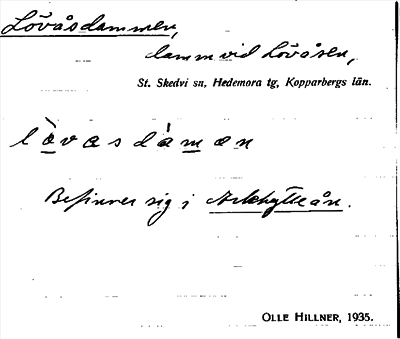 Lövåsdammen,
damm vid Lövåsen,
St. Skedvi sn, Hedemora tg, Kopparbergs län.
lòvasdàmən
Befinner sig i Arkhytteån.
OLLE HILLNER, 1935.